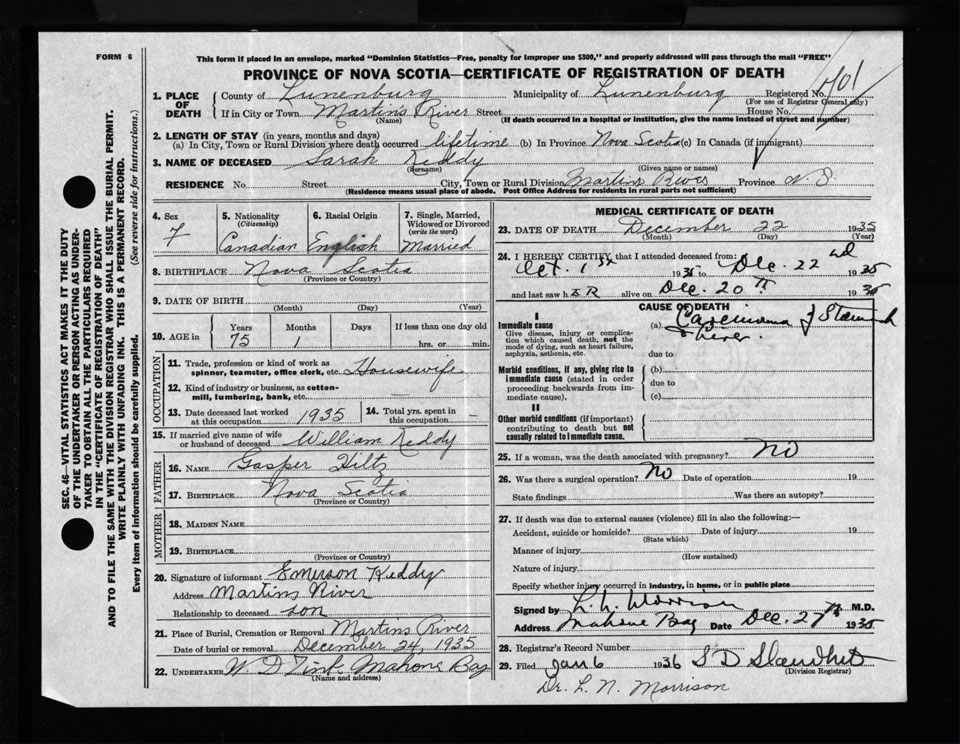 FORM 6
This form if placed in an envelope, marked "Dominion Statistics—Free, penalty for improper use $300," and properly addressed will pass through the mail "FREE"
PROVINCE OF NOVA SCOTIA—CERTIFICATE OF REGISTRATION OF DEATH
1. PLACE OF DEATH County of Lunenburg Municipality of Lunenburg Registered No. 401
(For use of Registrar General only)
If in City or Town Martins River Street House No.
(Name) (If death occurred in a hospital or institution, give the name instead of street and number)
2. LENGTH OF STAY (in years, months and days)
(a) In City, Town or Rural Division where death occurred lifetime (b) In Province Nova Scotia (c) In Canada (if immigrant)
3. NAME OF DECEASED Sarah Keddy
(Surname) (Given name or names)
RESIDENCE No. Street City, Town or Rural Division Martins River Province N. S.
(Residence means usual place of abode. Post Office Address for residents in rural parts not sufficient)
SEC. 46—VITAL STATISTICS ACT MAKES IT THE DUTY
OF THE UNDERTAKER OR PERSON ACTING AS UNDER-
TAKER TO OBTAIN ALL THE PARTICULARS REQUIRED
IN THE "CERTIFICATE OF REGISTRATION OF DEATH"
AND TO FILE THE SAME WITH THE DIVISION REGISTRAR WHO SHALL ISSUE THE BURIAL PERMIT.
WRITE PLAINLY WITH UNFADING INK. THIS IS A PERMANENT RECORD.
Every item of information should be carefully supplied. (See reverse side for instructions.)
4. Sex
F
5. Nationality
(Citizenship)
Canadian
6. Racial Origin
English
7. Single, Married,
Widowed or Divorced
(write the word)
Married
8. BIRTHPLACE Nova Scotia
(Province or Country)
9. DATE OF BIRTH
(Month) (Day) (Year)
10. AGE in Years Months Days If less than one day old
75 1 hrs. or min.
OCCUPATION
11. Trade, profession or kind of work as
spinner, teamster, office clerk, etc. Housewife
12. Kind of industry or business, as cotton-
mill, lumbering, bank, etc.
13. Date deceased last worked
at this occupation 1935
14. Total yrs. spent in
this occupation —
15. If married give name of wife
or husband of deceased William Keddy
FATHER
16. NAME Gasper Hiltz
17. BIRTHPLACE Nova Scotia
(Province or Country)
MOTHER
18. MAIDEN NAME
19. BIRTHPLACE
(Province or Country)
20. Signature of informant Emerson Keddy
Address Martins River
Relationship to deceased son
21. Place of Burial, Cremation or Removal Martins River
Date of burial or removal December 24, 1935
22. UNDERTAKER W D Zink Mahone Bay
(Name and address)
MEDICAL CERTIFICATE OF DEATH
23. DATE OF DEATH December 22 1935
(Month) (Day) (Year)
24. I HEREBY CERTIFY that I attended deceased from:
Oct. 1st 1935 to Dec. 22nd 1935
and last saw hER alive on Dec. 20th 1935
CAUSE OF DEATH
I
Immediate cause (a) Carcinoma of Stomach
& Liver.
Give disease, injury or complica-
tion which caused death, not the
mode of dying, such as heart failure,
asphyxia, asthenia, etc. due to
Morbid conditions, if any, giving rise to (b)
immediate cause (stated in order due to
proceeding backwards from im-
mediate cause). (c)
II
Other morbid conditions (if important)
contributing to death but not
causally related to immediate cause.
25. If a woman, was the death associated with pregnancy? No
26. Was there a surgical operation? No Date of operation 19
State findings Was there an autopsy?
27. If death was due to external causes (violence) fill in also the following:—
Accident, suicide or homicide? Date of injury 19
(State which)
Manner of injury
(How sustained)
Nature of injury
Specify whether injury occurred in industry, in home, or in public place
Signed by L. N. Morrison M.D.
Address Mahone Bay Date Dec. 27th 1935
28. Registrar's Record Number
29. Filed Jan 6 1936 S D
(Division Registrar)
Dr. L. N. Morrison